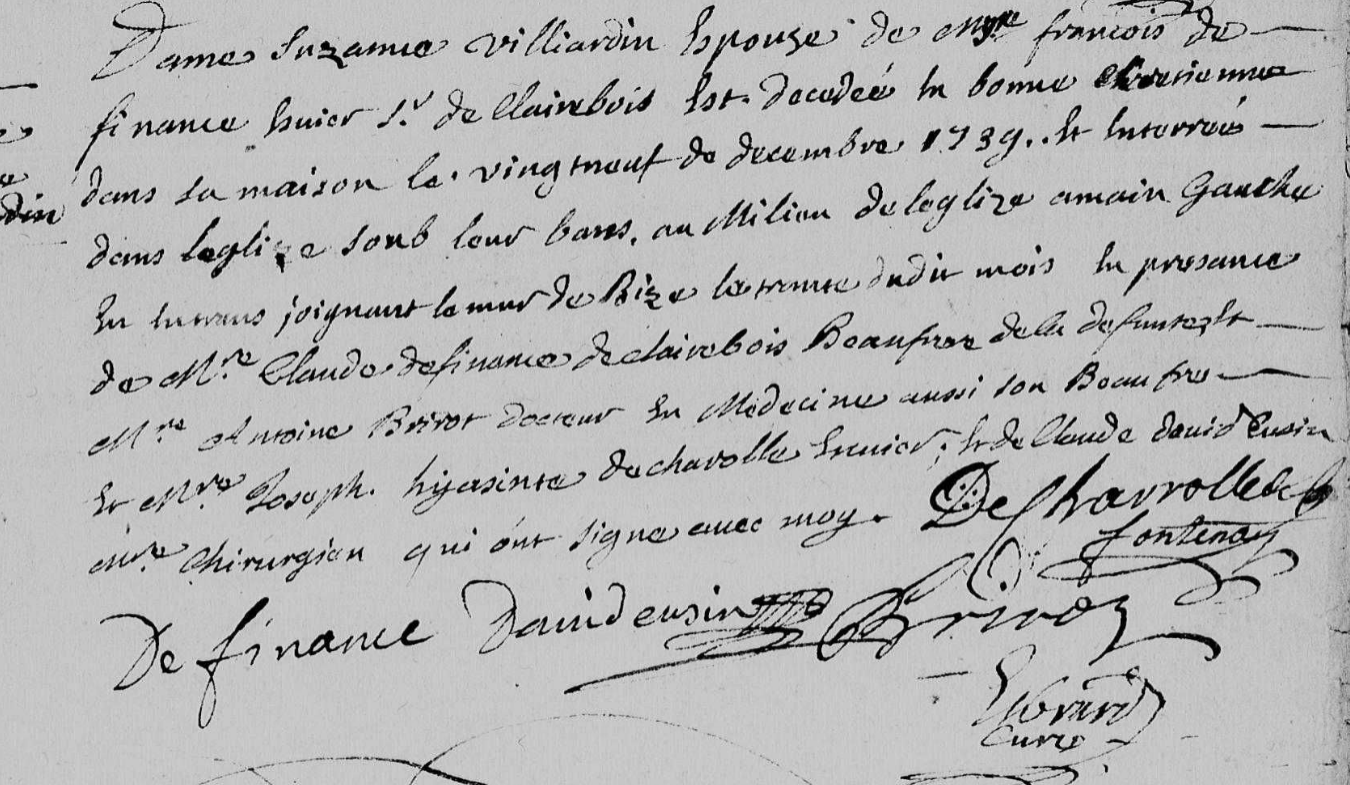 Dame Suzanne Villiardin Espouse de Mre françois de
finance Escuier Sr de Clairebois Est decedéé En bonne Chrestienne
dans sa maison le vingtneuf de decembre 1739. Et Enterreé
dans leglize soub leur banc, au Milieu de leglize amain Gauche
En Entrans joignant le mur de Bize le trente dudit mois En presance
de Mre Claude definance declairebois Beaufrere dela defunte, Et
Mre Antoine Brirot docteur En Medecine aussi son Beaufre
Et Mre Joseph hyasinte decharolle Escuier, Et de Claude david Cusin
mre Chirurgien qui ónt signe avec moy. De Charrolle de
fontenay
De finance Davidcusin Brirot
Ebrard
Curé